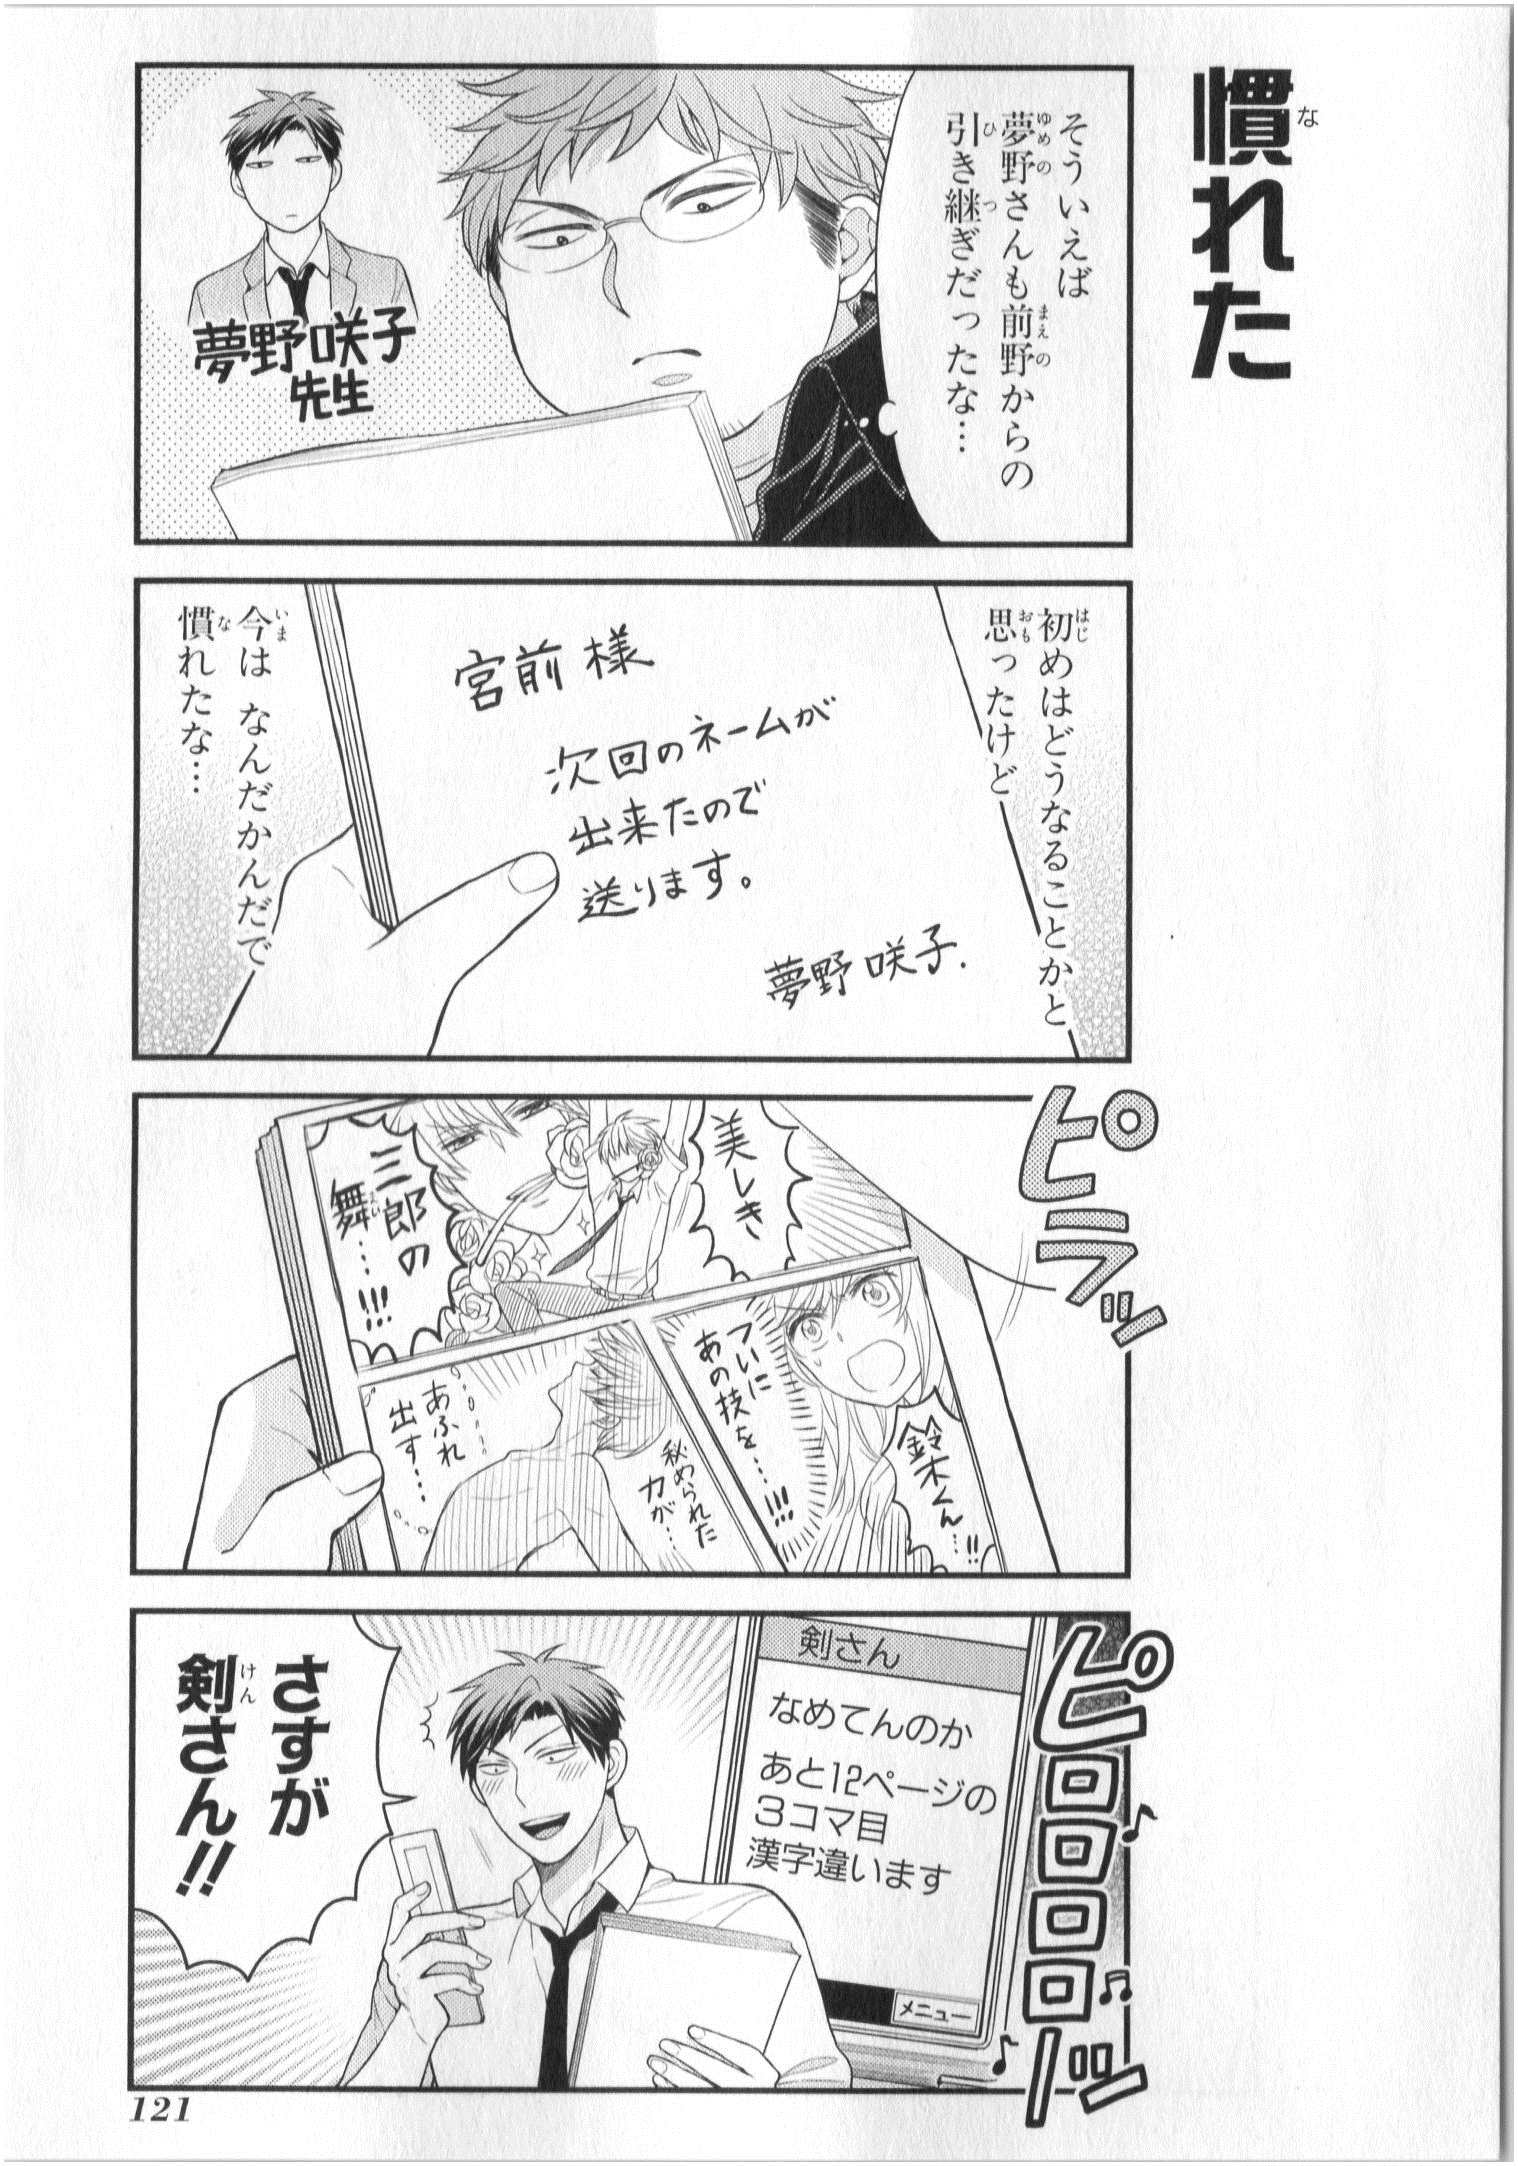 慣れた
そういえば
夢野さんも前野からの
引き継ぎだったな…
夢野咲子
先生
初めはどうなることかと
思ったけど
宮前様
次回のネームが
出来たので
送ります。
夢野咲子.
今は なんだかんだで
慣れたな…
ピラッ
美しき
三郎の
舞…!!!
鈴木くん…!!
ついに
あの技を…!!!
秘められた
力が…
あふれ
出す…
ピロロロロローッ
剣さん
なめてんのか
あと12ページの
3コマ目
漢字違います
メニュー
さすが
剣さん!!
121